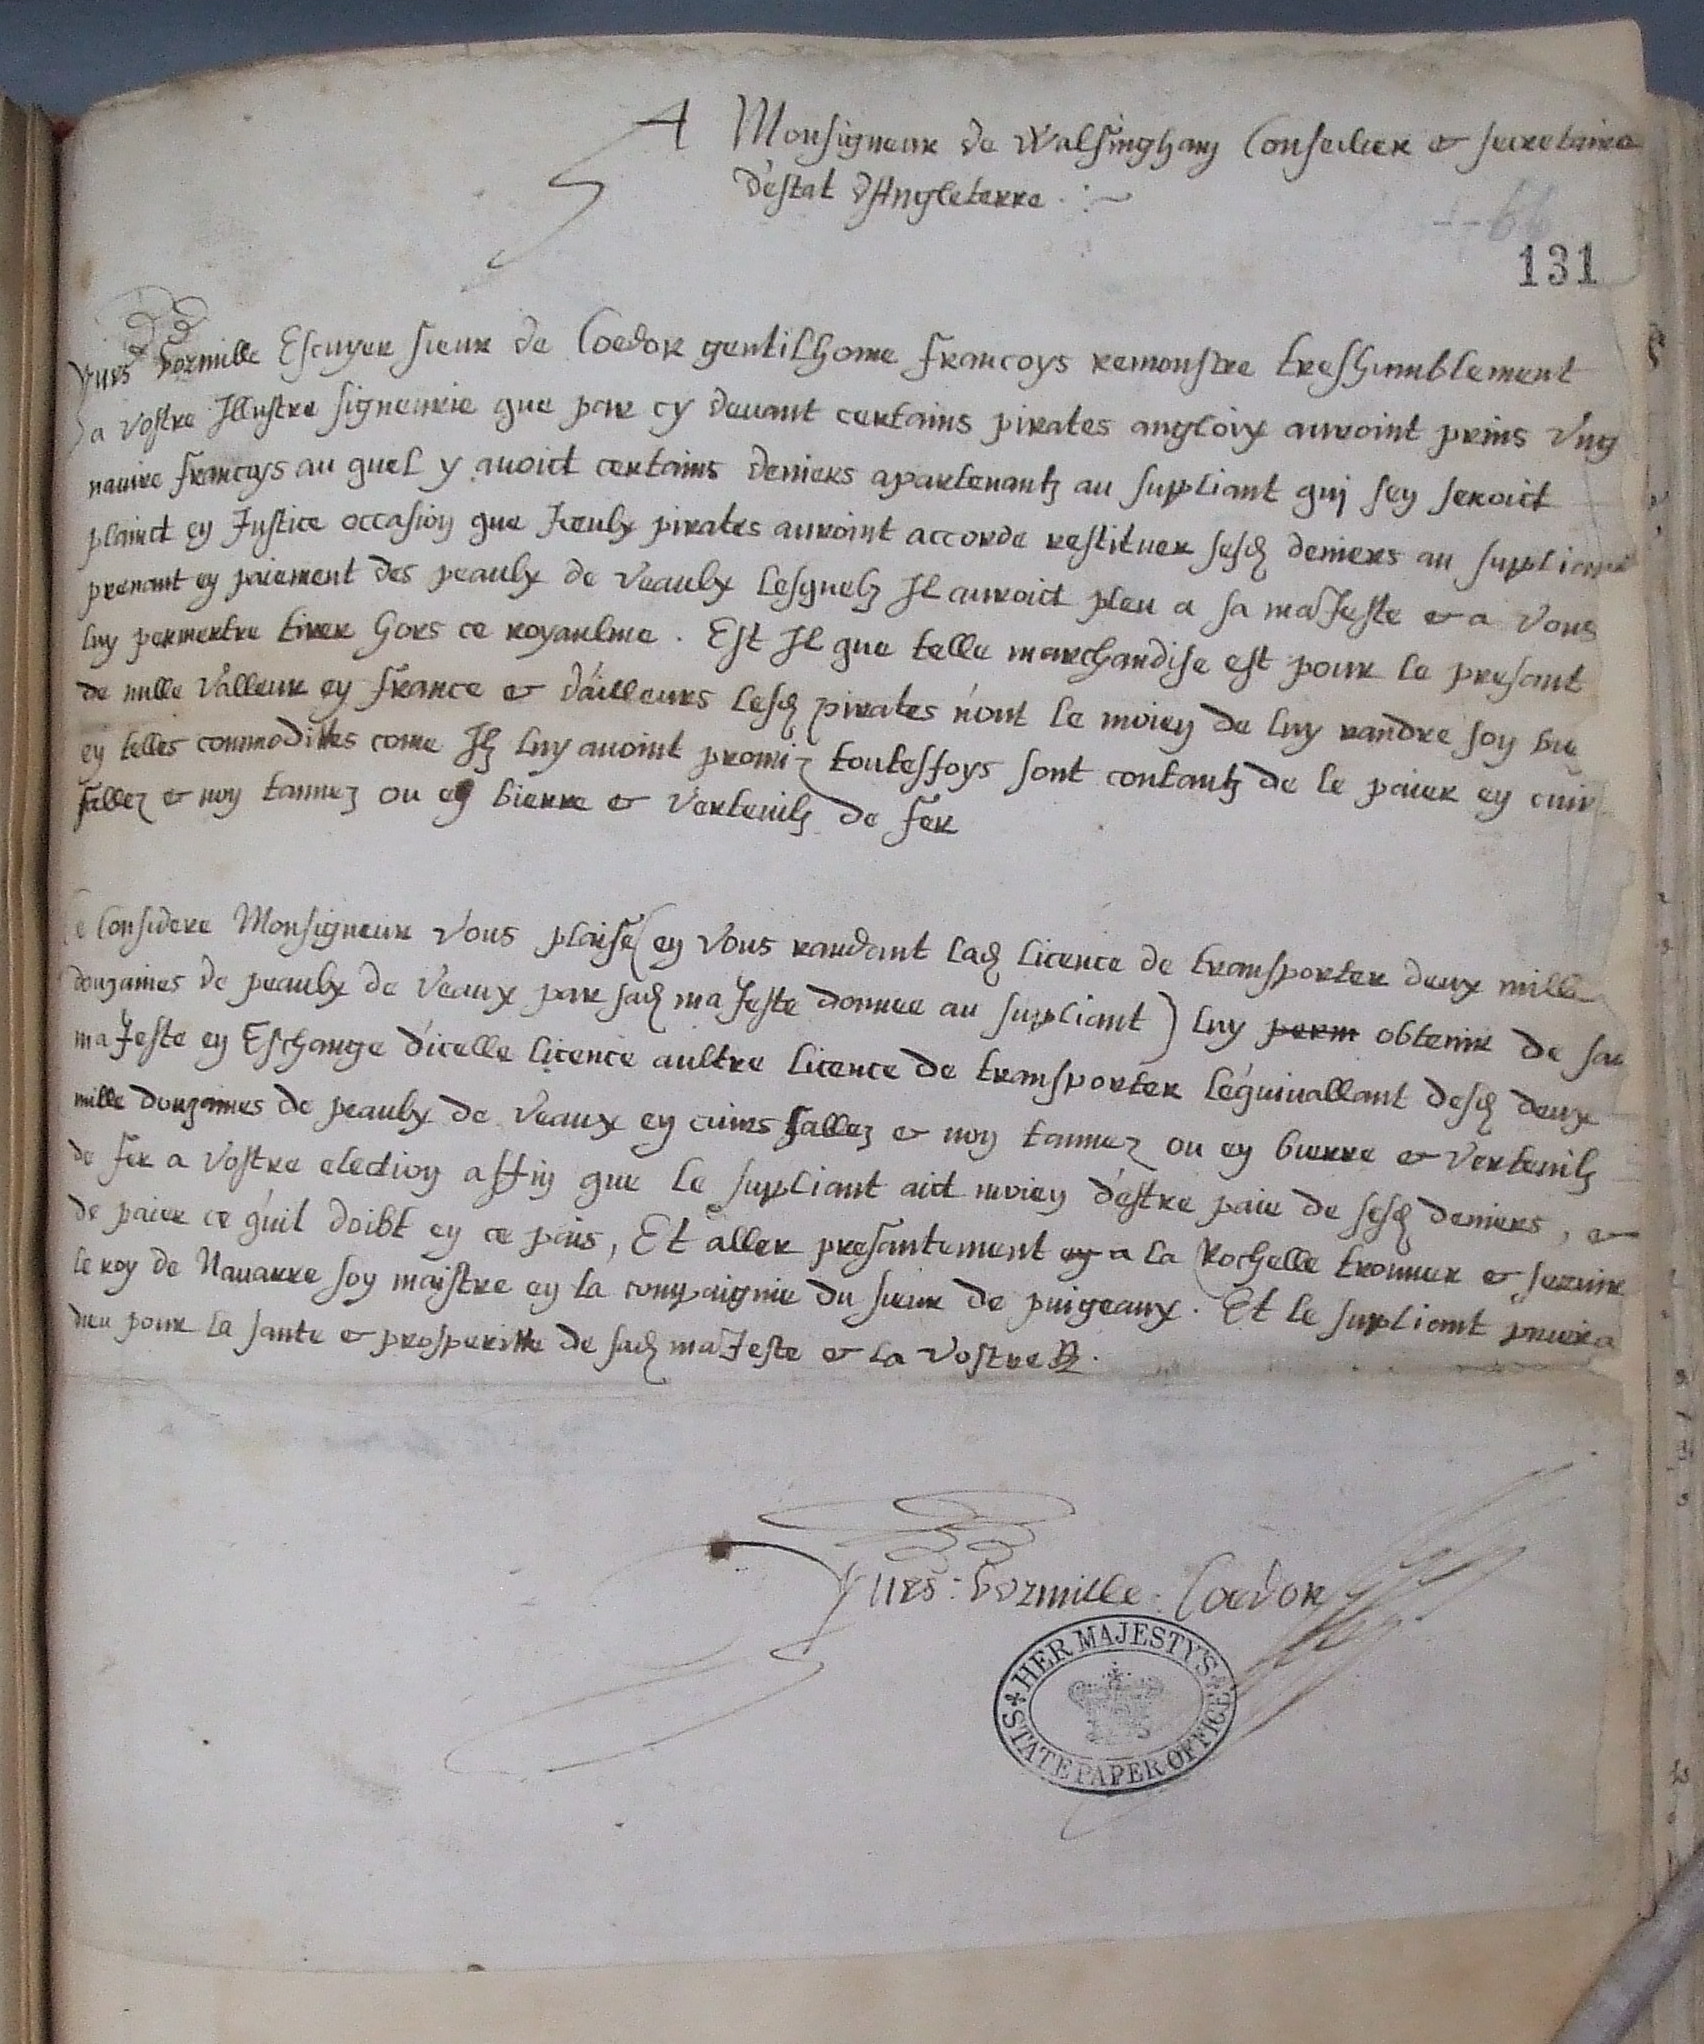 A Monsigneur de Walsingham Conseiller et secretaire
d'estat d'Angleterre
66
131
Yves bozmille Escuyer sieur de Coedor gentilhome francoys remonstre treshumblement
a vostre Illustre signeurie que par cy devant certains pirates angloix auroint prins ung
navire francoys au quel y avoict certains deniers apartenantz au supliant qui sen seroict
plainct en Justice occasion que Iceulx pirates auroint accorde restituer sesd deniers au supliant
prenant en paiement des peaulx de veaulx lesquelz Il auroict pleu a sa maJeste et a vous
luy permertre tirer hors ce royaulme. Est Il que telle marchandise est pour le presant
de nulle valleur en france et d'ailleurs lesd pirates n'ont le moien de luy randre son bie
en telles commodittes come Ilz luy avoint promiz toutesfoys sont contantz de le paier en cuir
sallez et non tannez ou en bierre et verteuilz de fer
Ce Considere Monsigneur vous plaise (en vous randant lad licence de transporter deux mille
douzaines de peaulx de veaux par sad maJeste donnee au supliant) luy perm obtenir de sa
maJeste en Eschange d'icelle licence aultre licence de transporter l'equivallant desd deux
mille douzaines de peaulx de veaux en cuirs sallez et non tannez ou en bierre et verteuilz
de fer a vostre election affin que le supliant aict moien d'estre paie de sesd deniers, et
de paier ce qu'il doibt en ce pais, Et aller presantement en a la Rochelle trouver et servir
le roy de Navarre son maistre en la compaignie du sieur de puigeaux. Et le supliant priera
dieu pour la sante et prosperitte de sad maJeste et la vostre
Yves : bozmille : Coedor
HER MAJESTY'S
STATE PAPER OFFICE